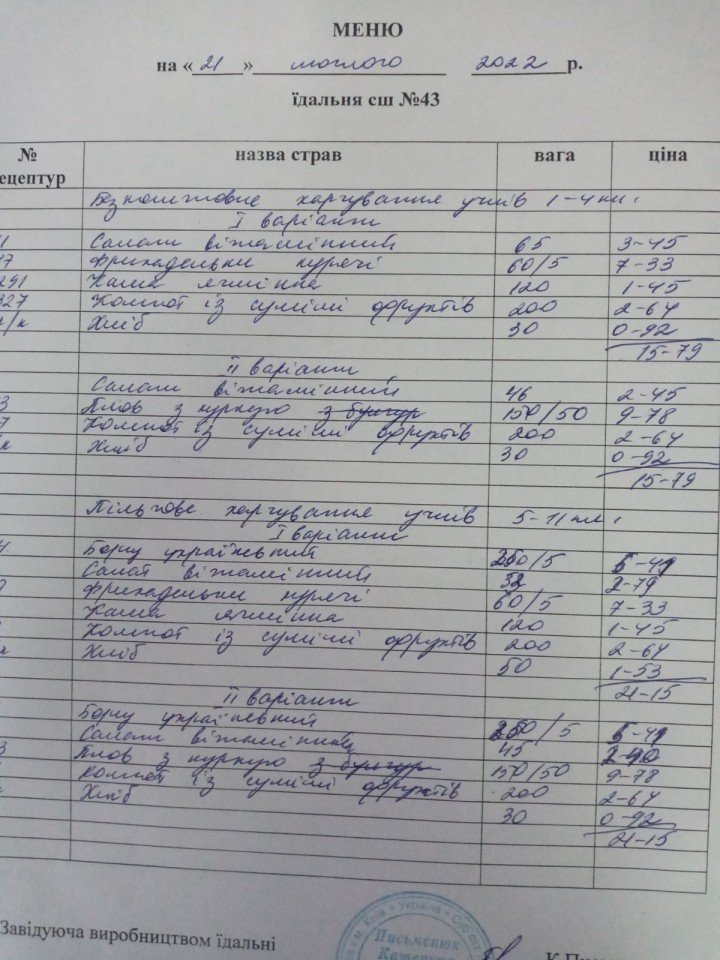 МЕНЮ
на « 21 » лютого 2022 р.
їдальня сш №43
№ ецептур назва страв вага ціна
Безкоштовне харчування учнів 1-4 кл.
I варіант
Салат вітамінний 65 3-45
Фрикадельки курячі 60/5 7-33
291 Каша ячмінна 120 1-45
327 Компот із суміші фруктів 200 2-64
/к Хліб 30 0-92
15-79
II варіант
Салат вітамінний 46 2-45
3 Плов з куркою з булгур 150/50 9-78
7 Компот із суміші фруктів 200 2-64
Хліб 30 0-92
15-79
Пільгове харчування учнів 5-11 кл.
I варіант
Борщ український 250/5 5-41
Салат вітамінний 32 2-79
Фрикадельки курячі 60/5 7-33
Каша ячмінна 120 1-45
Компот із суміші фруктів 200 2-64
Хліб 50 1-53
21-15
II варіант
Борщ український 250/5 5-41
Салат вітамінний 45 2-40
3 Плов з куркою з булгур 150/50 9-78
Компот із суміші фруктів 200 2-64
Хліб 30 0-92
21-15
Завідуюча виробництвом їдальні
м. Київ * Україна *
Письменюк
Катерина